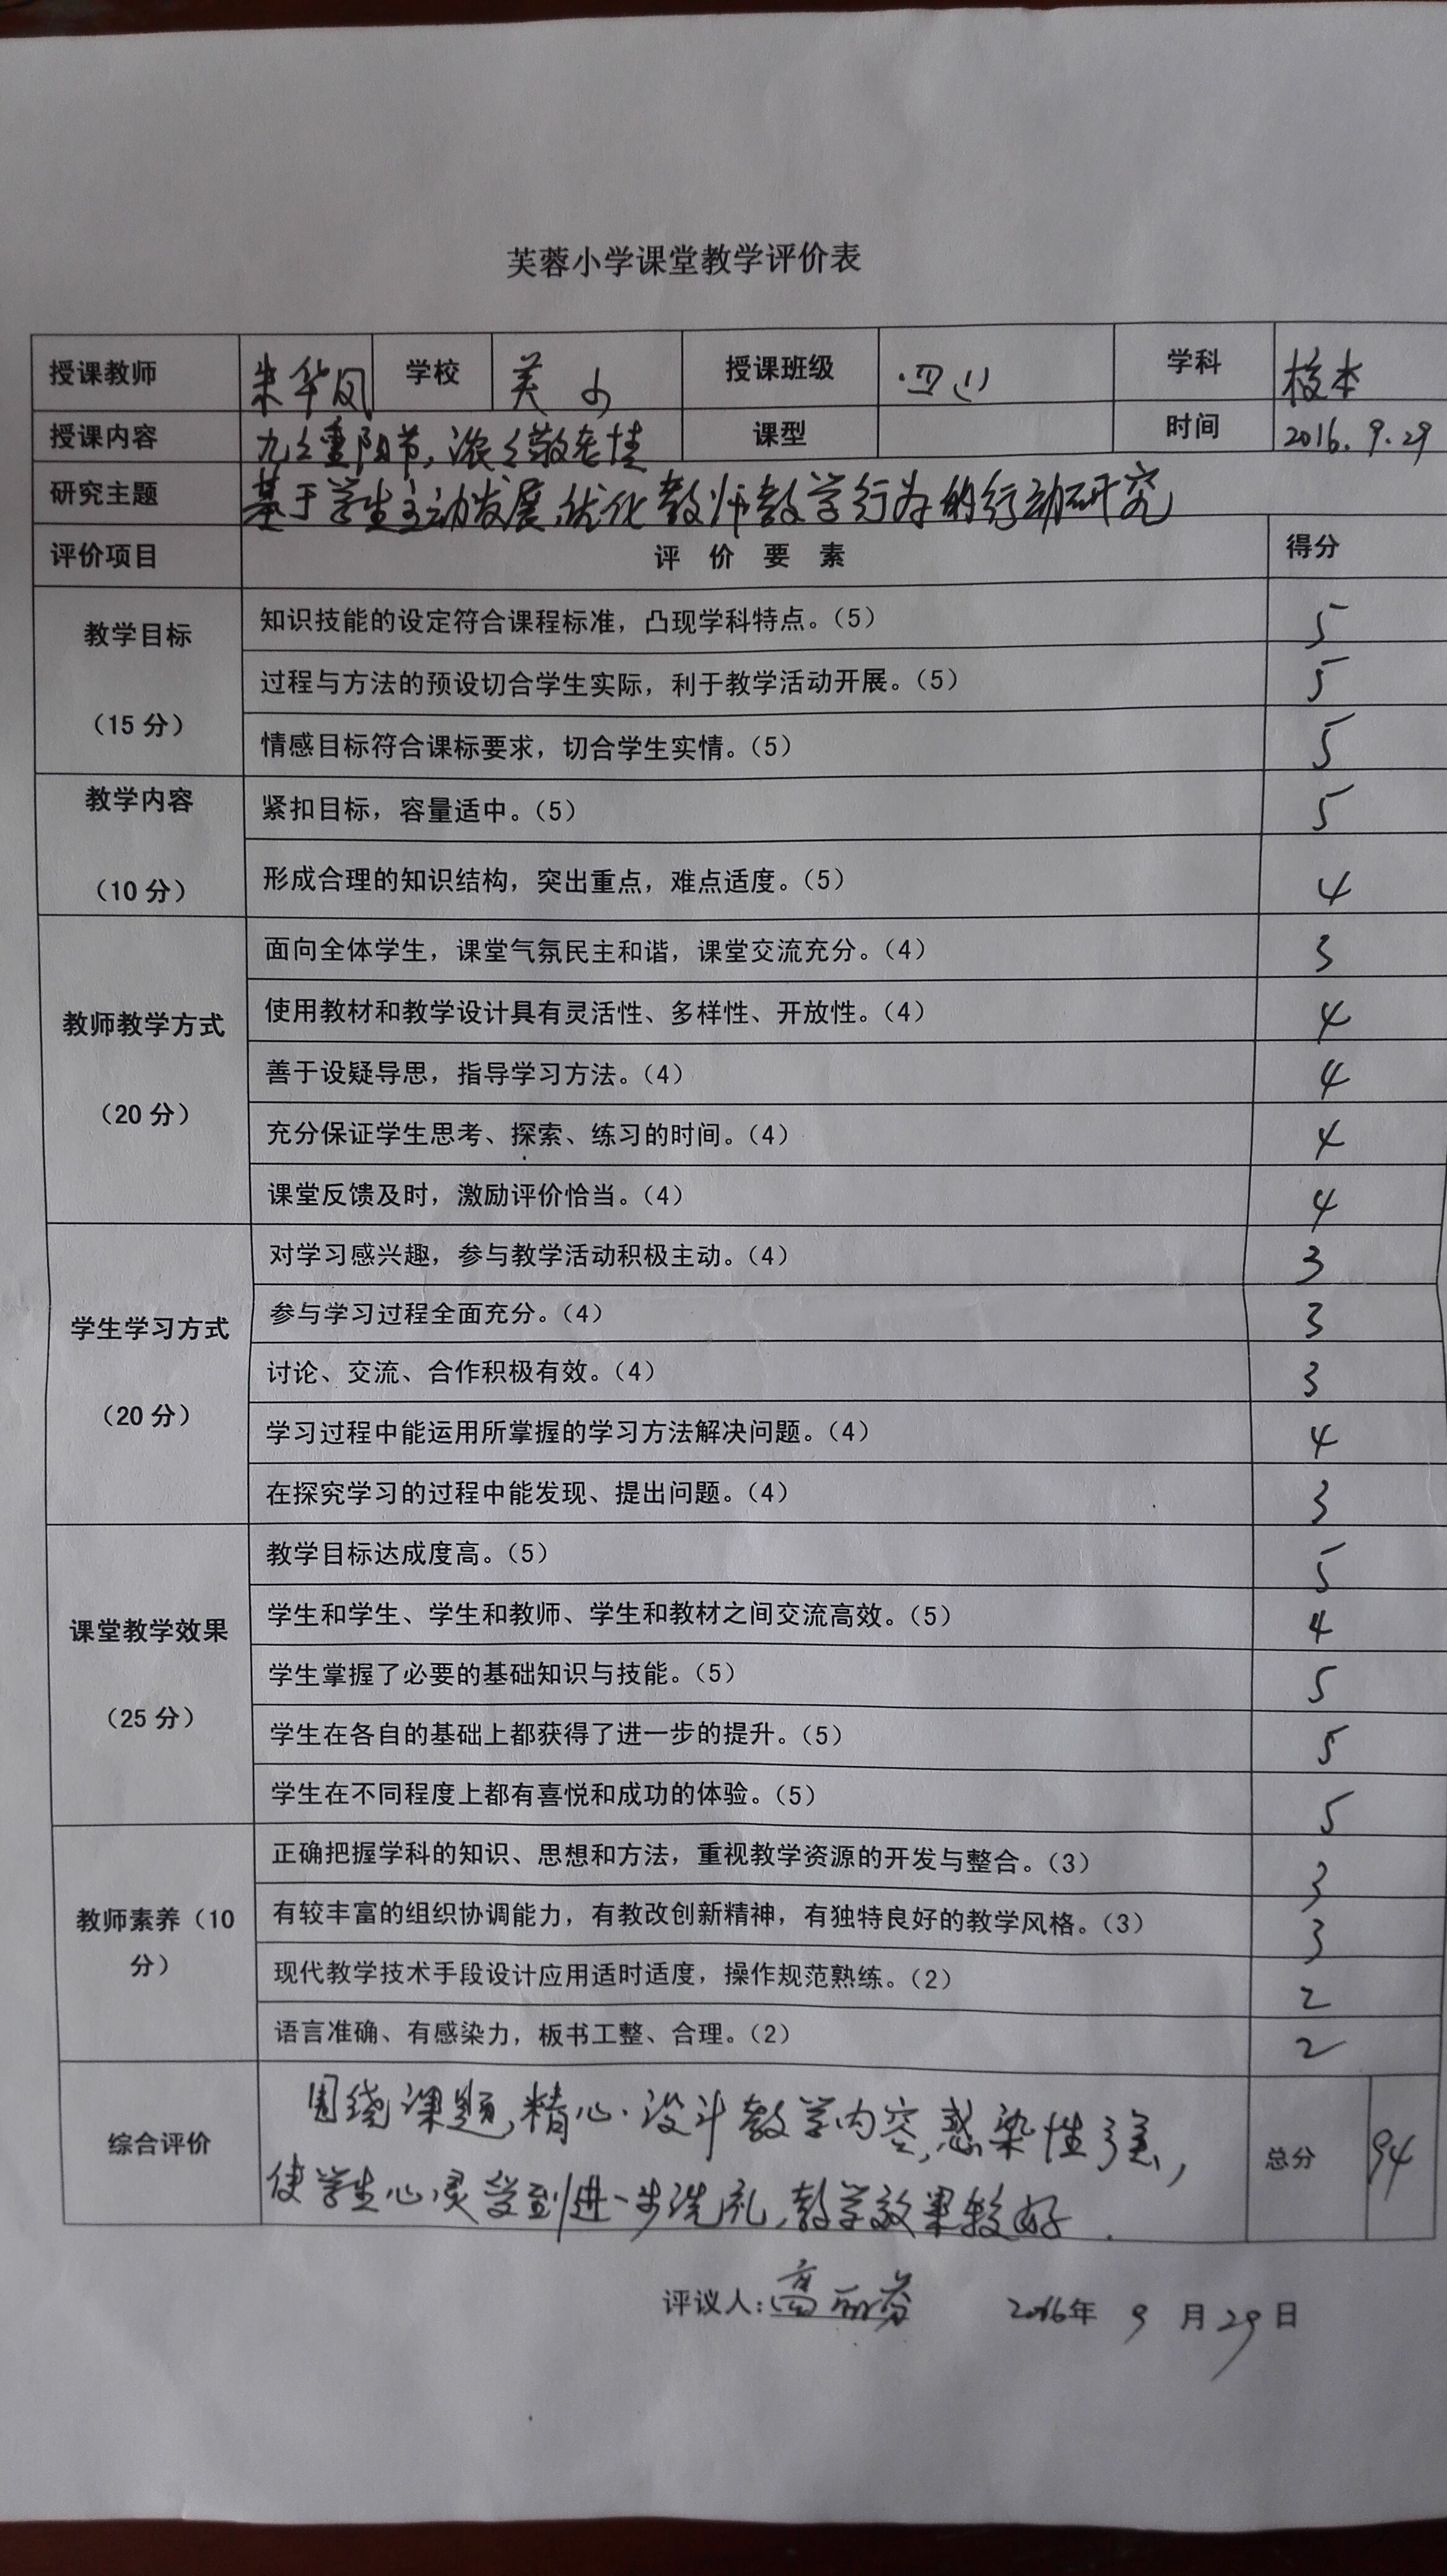 芙蓉小学课堂教学评价表
授课教师 朱华凤 学校 芙小 授课班级 四(1) 学科 校本
授课内容 九久重阳节,浓浓敬老情 课型 时间 2016.9.29
研究主题 基于学生主动发展,优化教师教学行为的行动研究
评价项目 评价要素 得分
教学目标
(15分)
知识技能的设定符合课程标准，凸现学科特点。(5) 5
过程与方法的预设切合学生实际，利于教学活动开展。(5) 5
情感目标符合课标要求，切合学生实情。(5) 5
教学内容
(10分)
紧扣目标，容量适中。(5) 5
形成合理的知识结构，突出重点，难点适度。(5) 4
教师教学方式
(20分)
面向全体学生，课堂气氛民主和谐，课堂交流充分。(4) 3
使用教材和教学设计具有灵活性、多样性、开放性。(4) 4
善于设疑导思，指导学习方法。(4) 4
充分保证学生思考、探索、练习的时间。(4) 4
课堂反馈及时，激励评价恰当。(4) 4
学生学习方式
(20分)
对学习感兴趣，参与教学活动积极主动。(4) 3
参与学习过程全面充分。(4) 3
讨论、交流、合作积极有效。(4) 3
学习过程中能运用所掌握的学习方法解决问题。(4) 4
在探究学习的过程中能发现、提出问题。(4) 3
课堂教学效果
(25分)
教学目标达成度高。(5) 5
学生和学生、学生和教师、学生和教材之间交流高效。(5) 4
学生掌握了必要的基础知识与技能。(5) 5
学生在各自的基础上都获得了进一步的提升。(5) 5
学生在不同程度上都有喜悦和成功的体验。(5) 5
教师素养(10
分)
正确把握学科的知识、思想和方法，重视教学资源的开发与整合。(3) 3
有较丰富的组织协调能力，有教改创新精神，有独特良好的教学风格。(3) 3
现代教学技术手段设计应用适时适度，操作规范熟练。(2) 2
语言准确、有感染力，板书工整、合理。(2) 2
综合评价
围绕课题,精心设计教学内容,感染性强,
使学生心灵受到进一步洗礼,教学效果较好.
总分 94
评议人:高丽芬 2016年 9 月 29 日